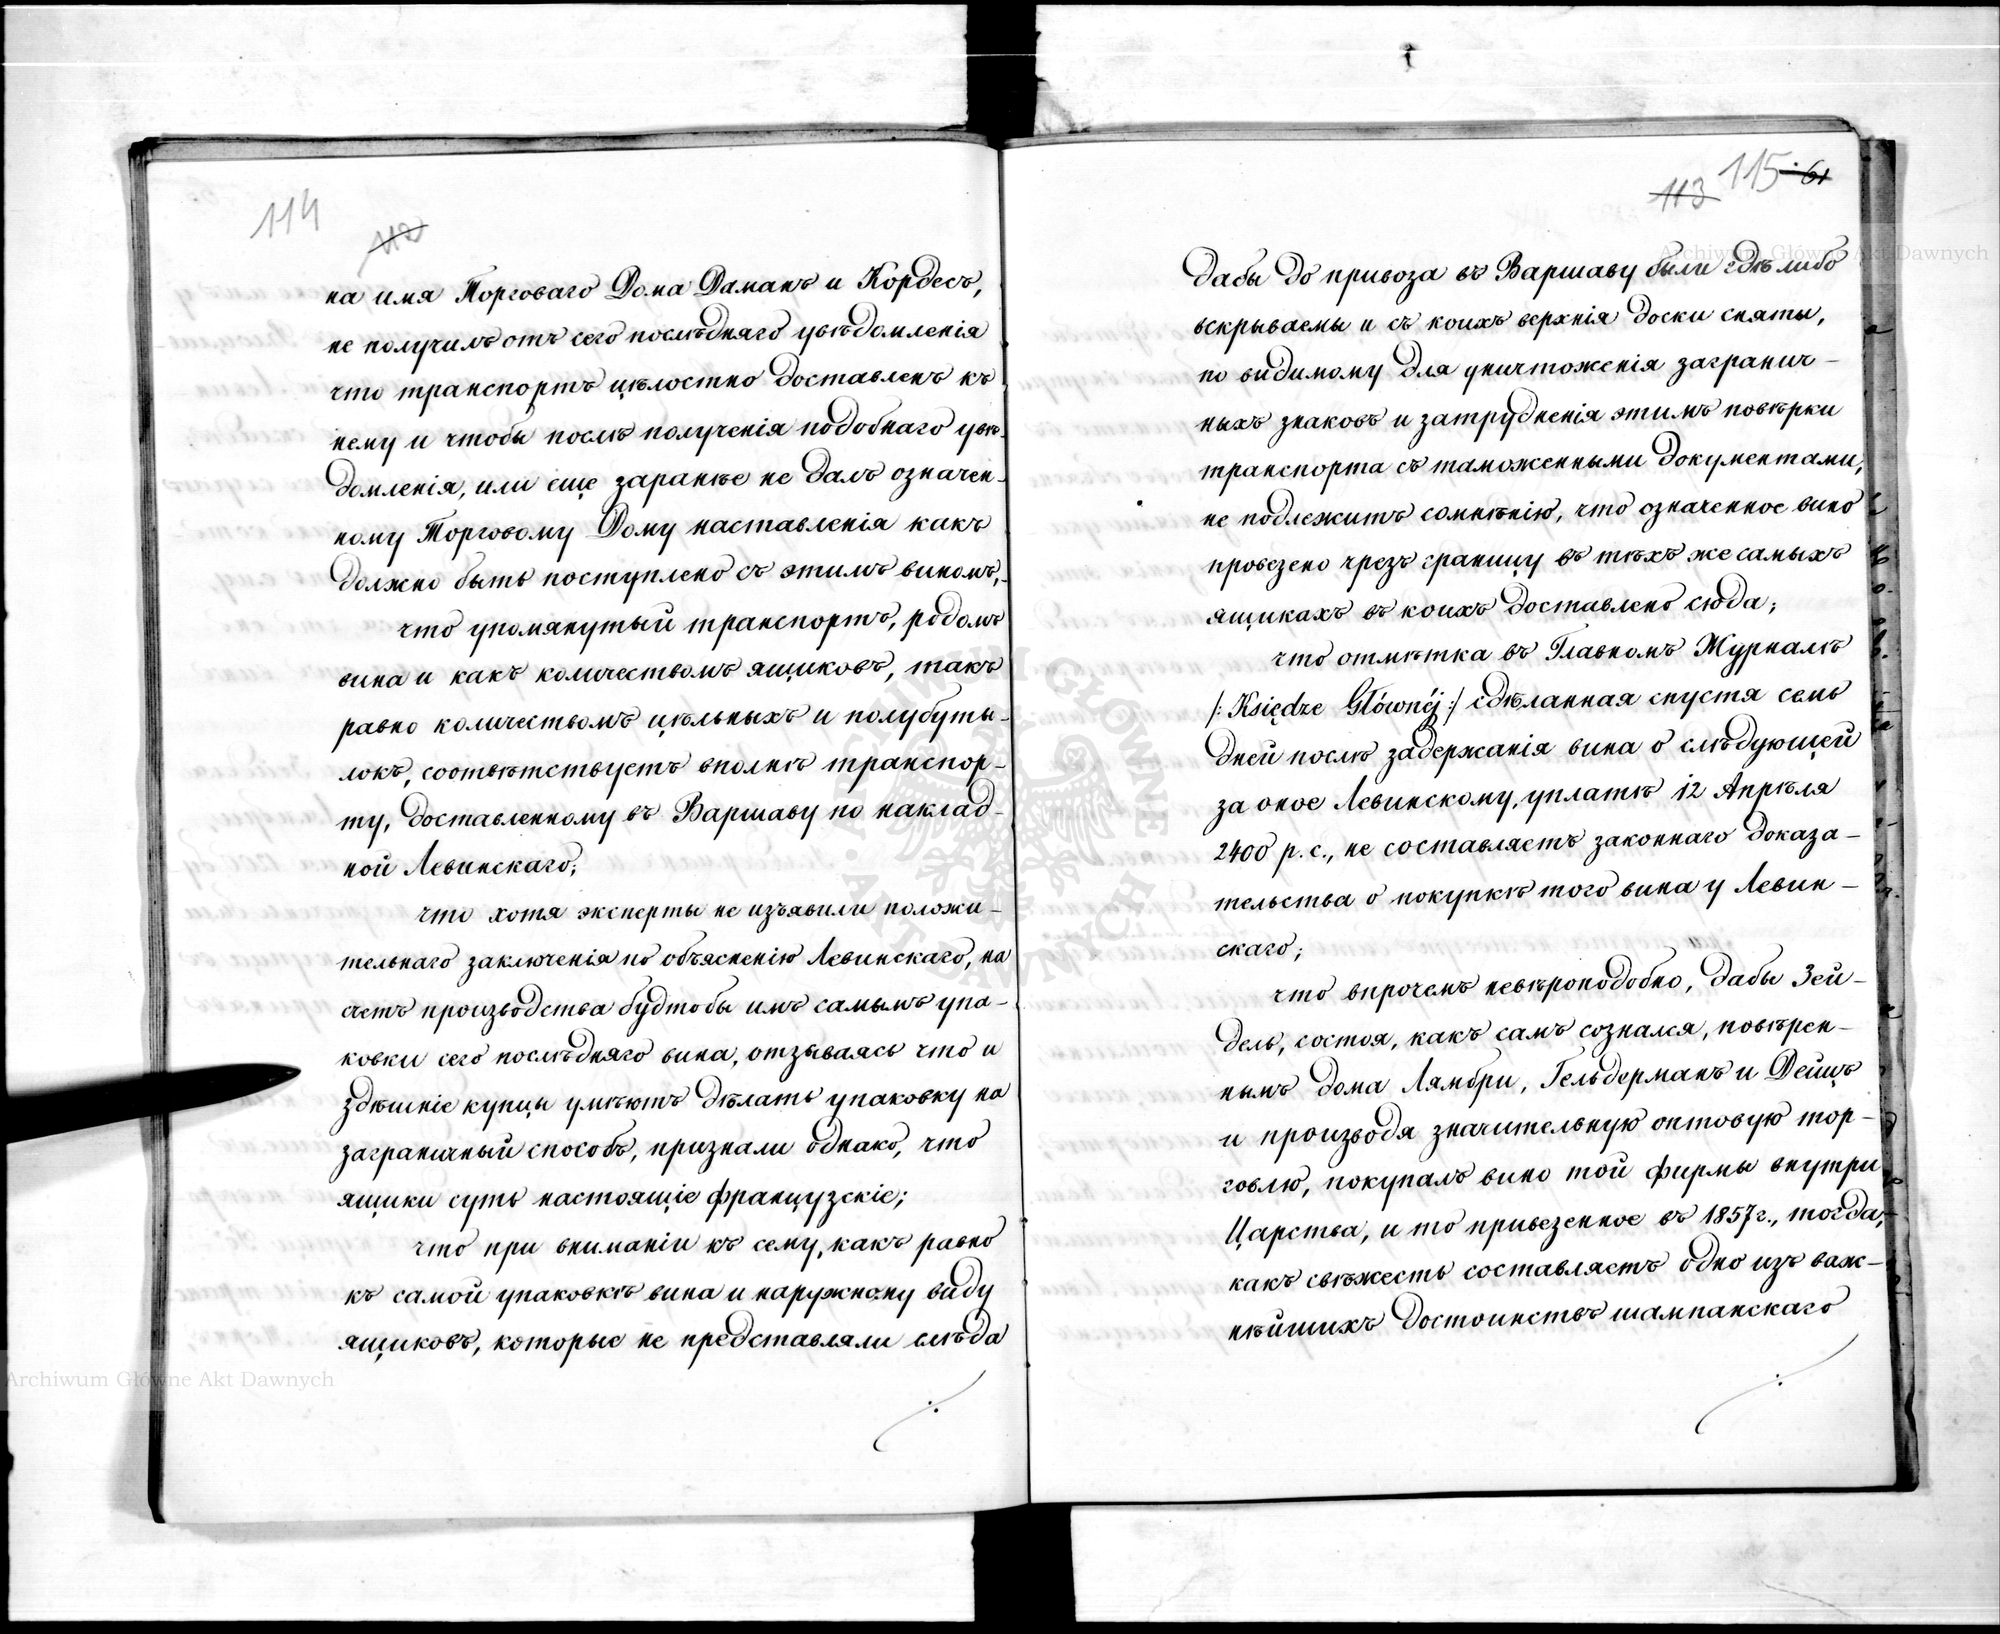 114
112
на имя Торговаго Дома Даманъ и Кордесъ,
не получилъ отъ сего послѣдняго увѣдомленія
что транспортъ цѣлостно доставленъ къ
нему и чтобы послѣ полученія подобнаго увѣ-
домленія, или еще заранѣе не далъ означен-
ному Торговому Дому наставленія какъ
должно быть поступлено съ этимъ виномъ,-
что упомянутый транспортъ, родомъ
вина и какъ количествомъ ящиковъ, такъ
равно количествомъ цѣльныхъ и полубуты-
локъ, соотвѣтствуетъ вполнѣ транспор-
ту, доставленному въ Варшаву по наклад-
ной Левинскаго;
что хотя эксперты не изъявили положи-
тельнаго заключенія по объясненію Левинскаго, на
счетъ производства будто бы имъ самымъ упа-
ковки сего послѣдняго вина, отзываясь что и
здѣшніе купцы умѣютъ дѣлать упаковку на
заграничный способъ, признали однако, что
ящики суть настоящіе французскіе;
что при вниманіи къ сему, какъ равно
къ самой упаковкѣ вина и наружному виду
ящиковъ, которые не представляли слѣда
115 61
113
дабы до привоза въ Варшаву были гдѣ либо
вскрываемы и съ коихъ верхнія доски сняты,
по видимому для уничтоженія загранич-
ныхъ знаковъ и затрудненія этимъ повѣрки
транспорта съ таможенными документами,
не подлежитъ сомнѣнію, что означенное вино
провезено чрезъ границу въ тѣхъ же самыхъ
ящикахъ въ коихъ доставлено сюда;
что отмѣтка въ Главномъ Журналѣ
/: Księdze Głównéj :/ сдѣланная спустя семь
дней послѣ задержанія вина о слѣдующей
за оное Левинскому, уплатѣ 12 Апрѣля
2400 р. с., не составляетъ законнаго доказа-
тельства о покупкѣ того вина у Левин-
скаго;
что впрочемъ невѣроподобно, дабы Зей-
дель, состоя, какъ самъ сознался, повѣрен-
нымъ дома Лямбри, Гельдерманъ и Дейцъ
и производя значительную оптовую тор-
говлю, покупалъ вино той фирмы внутри
Царства, и то привезенное въ 1857 г., тогда,
какъ свѣжесть составляетъ одно изъ важ-
нѣйшихъ достоинствъ шампанскаго
Archiwum Główne Akt Dawnych
Archiwum Główne Akt Dawnych
ARCHIWUM GŁÓWNE AKT DAWNYCH